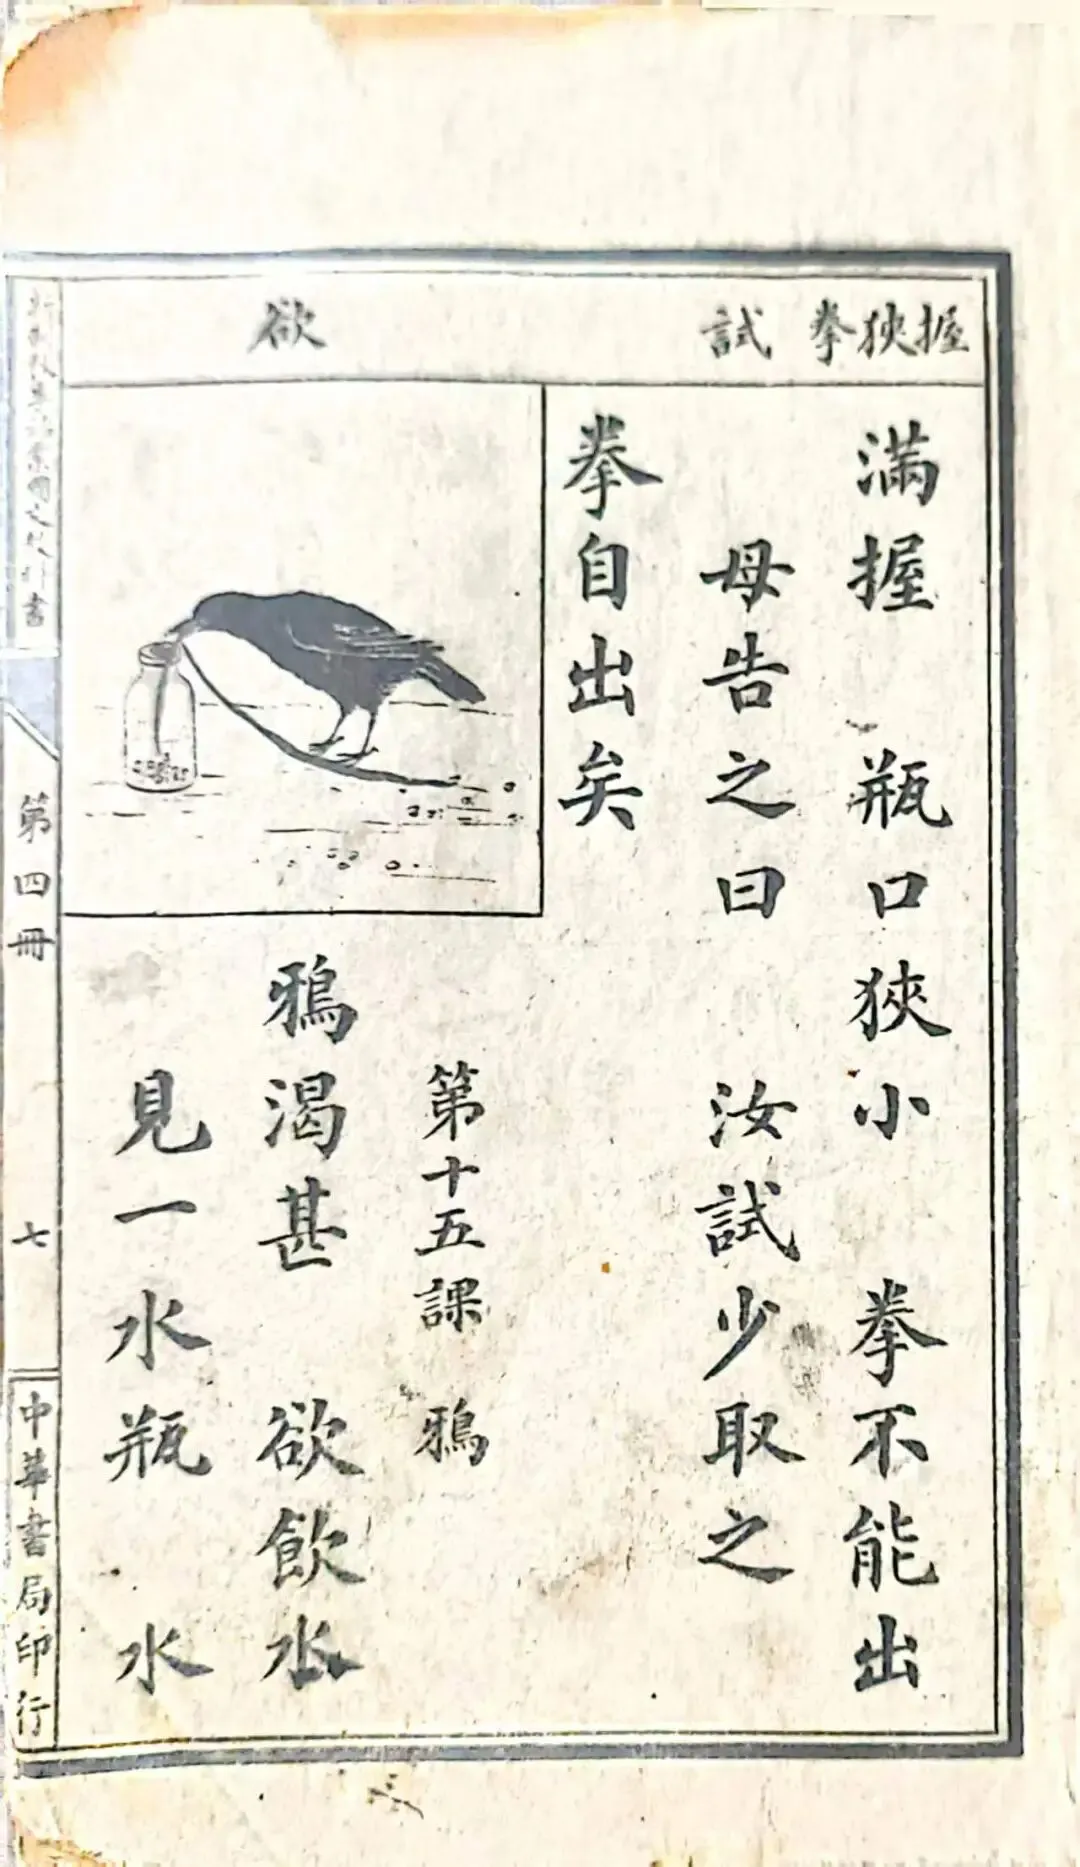 握狹拳
試
欲
滿握 瓶口狹小 拳不能出
母告之曰 汝試少取之
拳自出矣
第十五課 鴉
鴉渴甚 欲飲水
見一水瓶 水
書
第四冊
七
中華書局印行